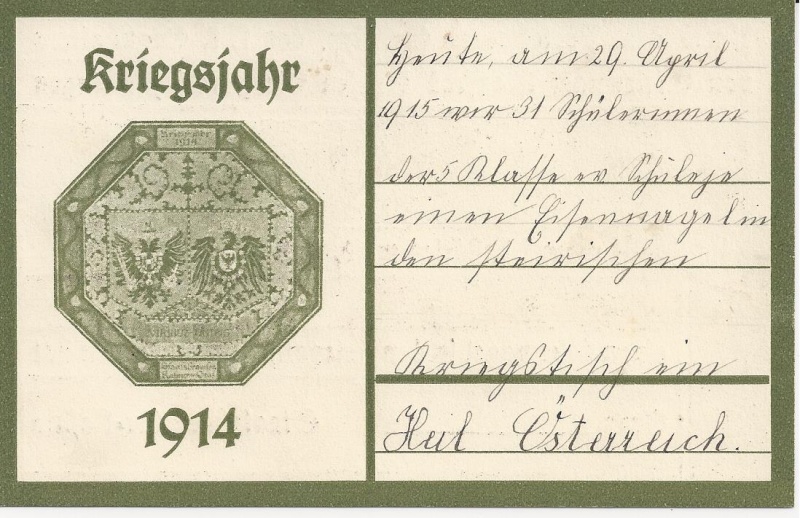 Kriegsjahr
Kriegsjahr
1914
1914
Heute, am 29. April
1915 wer 31 Schülerinnen
der 5 Klasse ev Schule je
einen Eisennagel in
den steirischen
Kriegstisch ein
Heil Österreich.